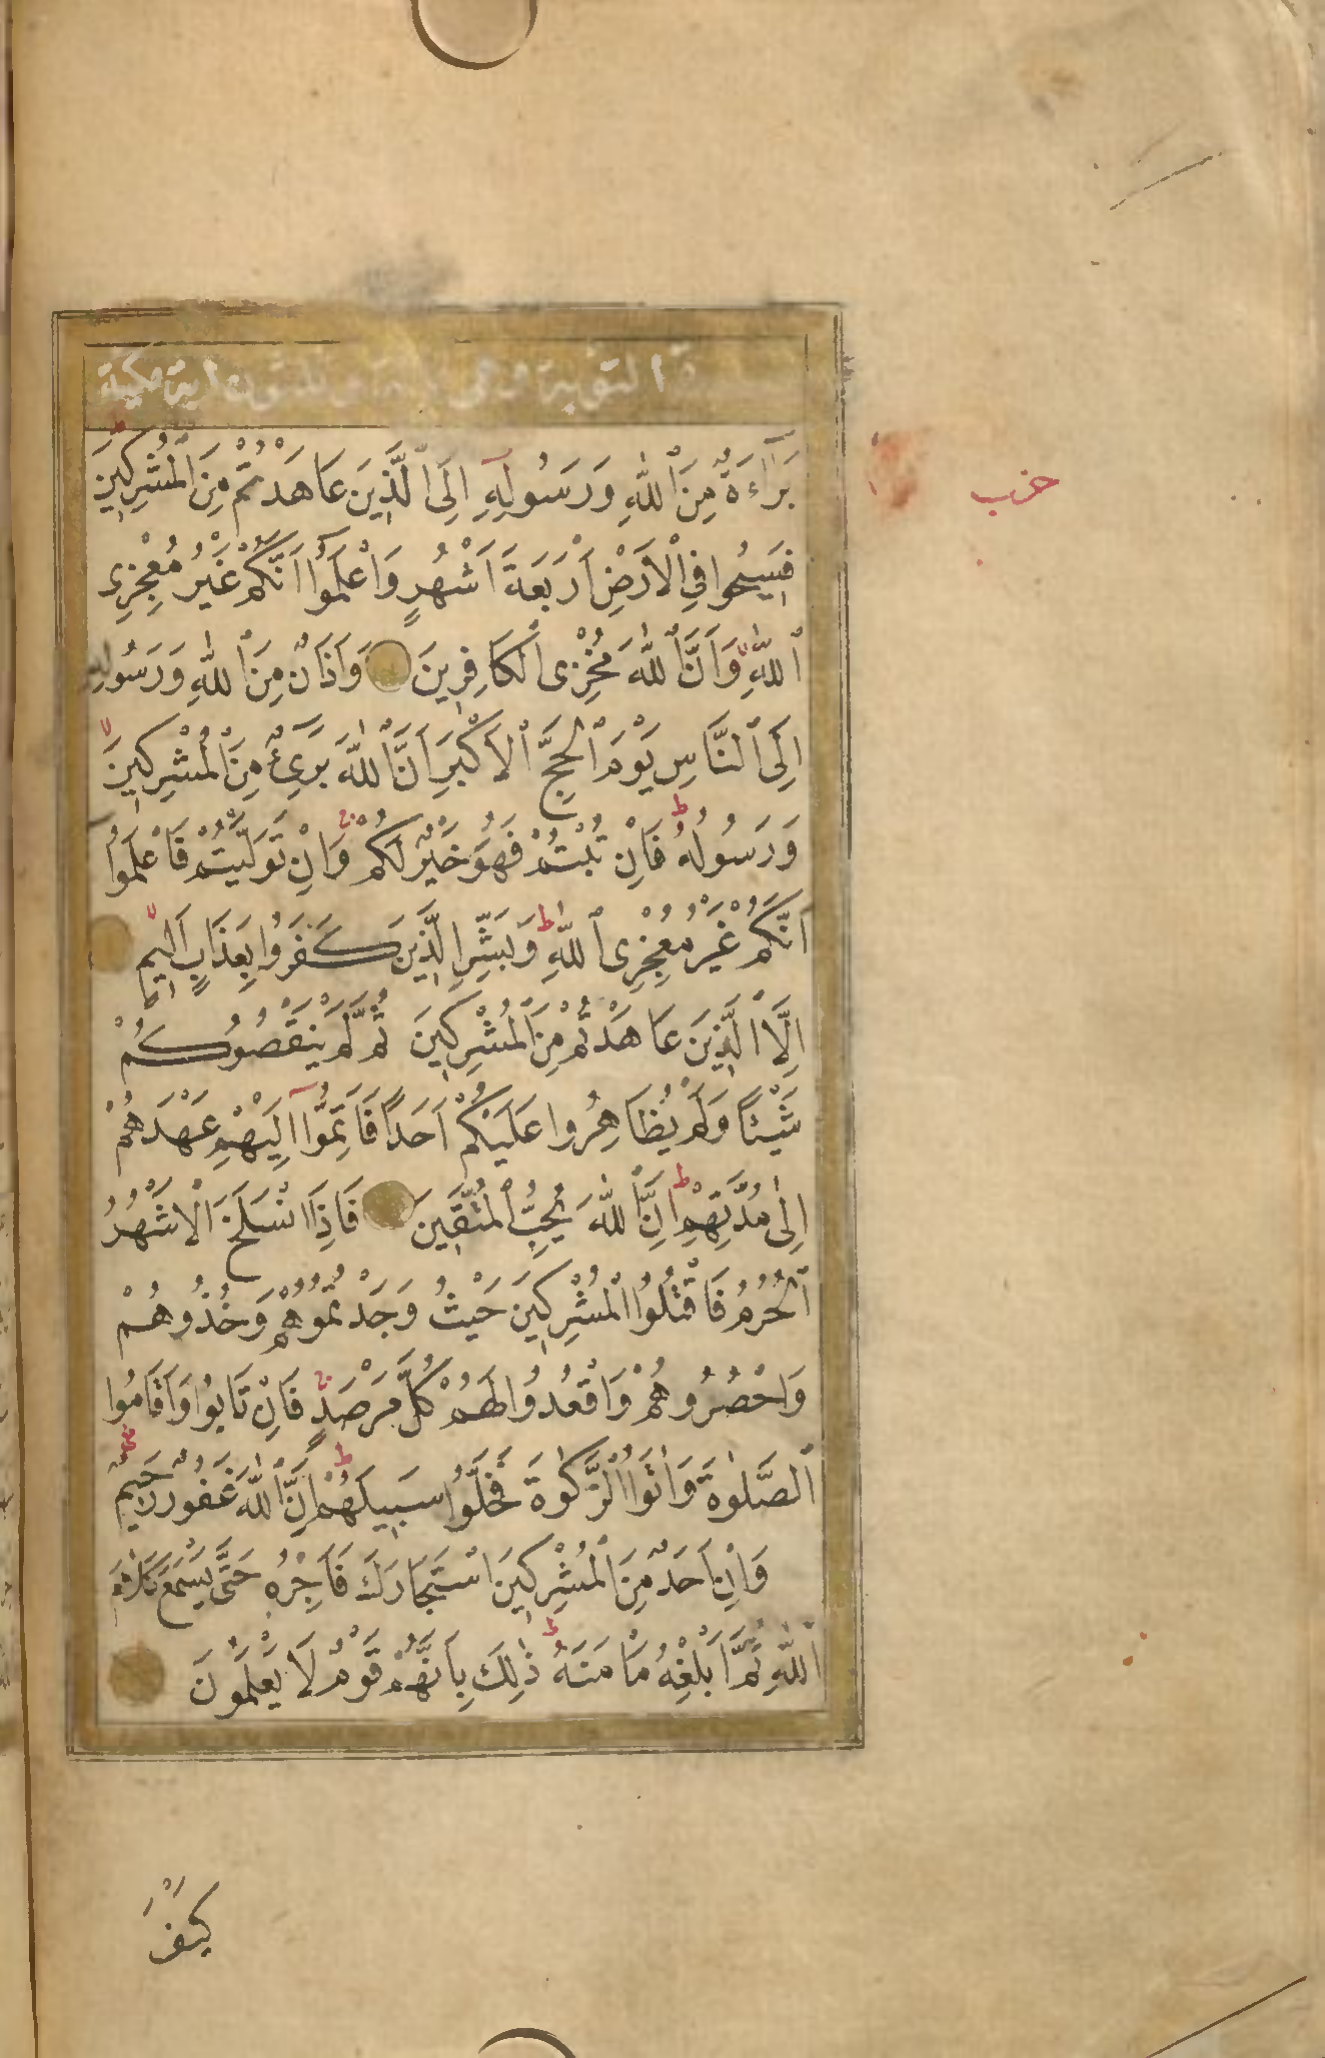 التوبة وهى اية مكية
بَرَٓاءَةٌ مِنَ ٱللّٰهِ وَرَسُولِهِٓ اِلَى ٱلَّذِينَ عَاهَدْتُمْ مِنَ ٱلْمُشْرِكِينَ
حزب
فَسِيحُوا فِى ٱلْاَرْضِ اَرْبَعَةَ اَشْهُرٍ وَاعْلَمُٓوا اَنَّكُمْ غَيْرُ مُعْجِزِى
ٱللّٰهِ وَاَنَّ ٱللّٰهَ مُخْزِى ٱلْكَافِرِينَ وَاَذَانٌ مِنَ ٱللّٰهِ وَرَسُولِهِ
اِلَى ٱلنَّاسِ يَوْمَ ٱلْحَجِّ ٱلْاَكْبَرِ اَنَّ ٱللّٰهَ بَرِىءٌ مِنَ ٱلْمُشْرِكِينَ
وَرَسُولُهُ ط فَاِنْ تُبْتُمْ فَهُوَ خَيْرٌ لَكُمْ وَاِنْ تَوَلَّيْتُمْ فَاعْلَمُٓوا
اَنَّكُمْ غَيْرُ مُعْجِزِى ٱللّٰهِ ط وَبَشِّرِ الَّذِينَ كَفَرُوا بِعَذَابٍ اَلِيمٍ
اِلَّا الَّذِينَ عَاهَدْتُمْ مِنَ ٱلْمُشْرِكِينَ ثُمَّ لَمْ يَنْقُصُوكُمْ
شَيْئًا وَلَمْ يُظَاهِرُوا عَلَيْكُمْ اَحَدًا فَاَتِمُّٓوا اِلَيْهِمْ عَهْدَهُمْ
اِلٰى مُدَّتِهِمْ ط اِنَّ ٱللّٰهَ يُحِبُّ ٱلْمُتَّقِينَ فَاِذَا انْسَلَخَ الْاَشْهُرُ
ٱلْحُرُمُ فَاقْتُلُوا الْمُشْرِكِينَ حَيْثُ وَجَدْتُمُوهُمْ وَخُذُوهُمْ
وَاحْصُرُوهُمْ وَاقْعُدُوا لَهُمْ كُلَّ مَرْصَدٍ فَاِنْ تَابُوا وَاَقَامُوا
ٱلصَّلٰوةَ وَاٰتَوُا الزَّكٰوةَ فَخَلُّوا سَبِيلَهُمْ ط اِنَّ ٱللّٰهَ غَفُورٌ رَحِيمٌ
وَاِنْ اَحَدٌ مِنَ ٱلْمُشْرِكِينَ اسْتَجَارَكَ فَاَجِرْهُ حَتّٰى يَسْمَعَ كَلَامَ
ٱللّٰهِ ثُمَّ اَبْلِغْهُ مَاْمَنَهُ ط ذٰلِكَ بِاَنَّهُمْ قَوْمٌ لَا يَعْلَمُونَ
كَيْفَ